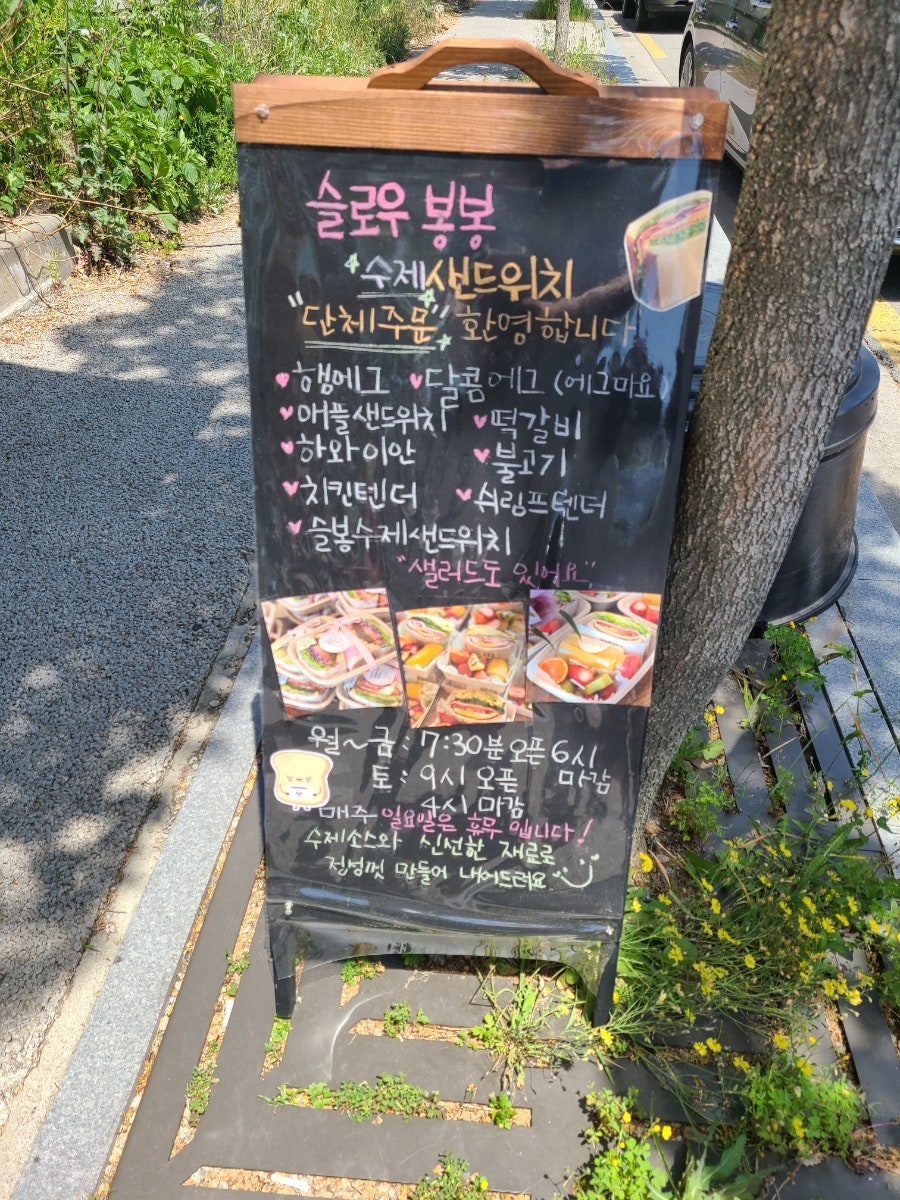 슬로우 봉봉
수제샌드위치
"단체주문" 환영합니다
♥햄에그 ♥달콤에그 (에그마요)
♥애플샌드위치 ♥떡갈비
♥하와이안 ♥불고기
♥치킨텐더 ♥쉬림프텐더
♥슬봉수제샌드위치
"샐러드도 있어요"
월~금 : 7:30분 오픈 6시 마감
토 : 9시 오픈
4시 마감
매주 일요일은 휴무입니다!
수제소스와 신선한 재료로
정성껏 만들어 내어드려요